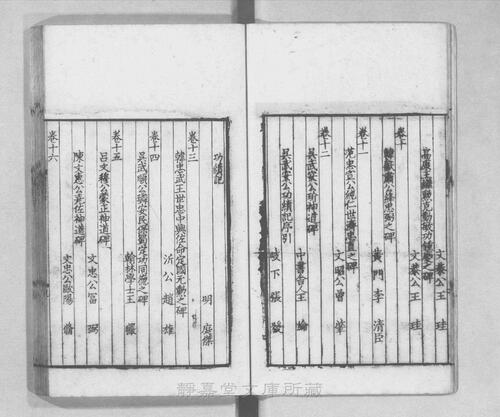 文恭公王 珪
卷十
文恭公王 珪
韓獻肅公絳忠弼之碑
黃門李清臣
卷十一
范忠宣公純仁世濟忠直之碑
文昭公曾 肇
卷十二
吳武安公玠神道碑
中書舍人王 綸
吳武安公功績記序引
岐下張 發
功績記
明庭傑
卷十三
韓忠武王世忠中興佐命定國元勳之碑
沂公趙 雄
卷十四
吳武順公璘安民保蜀定功同德之碑
翰林學士王 曮
卷十五
呂文穆公蒙正神道碑
文忠公富 弼
陳文惠公堯佐神道碑
文忠公歐陽 脩
卷十六
靜嘉堂文庫所藏